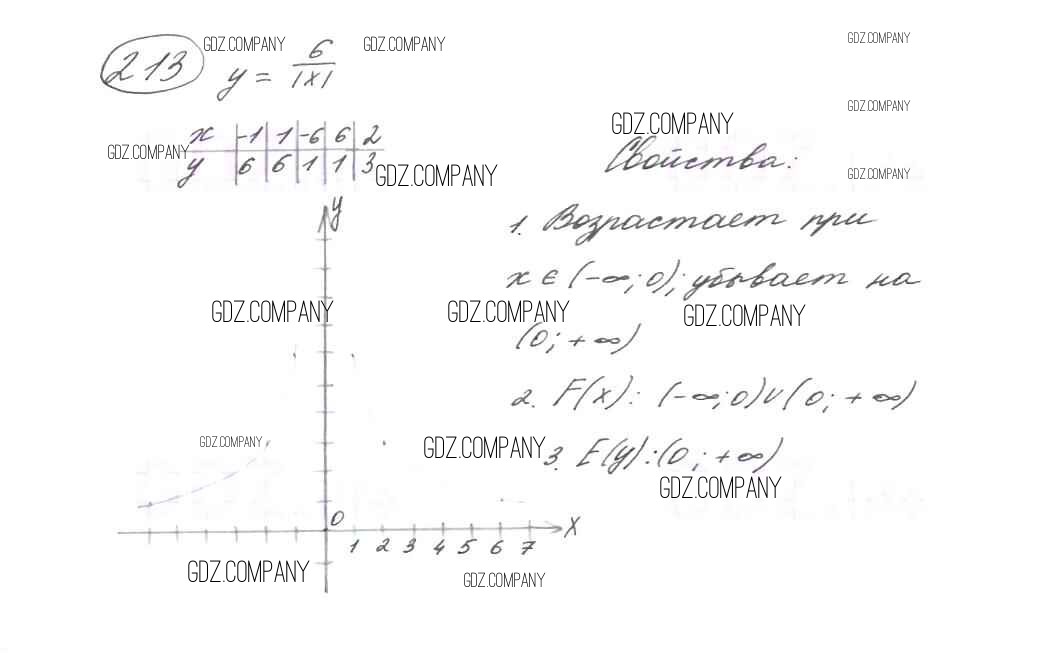 GDZ.COMPANY GDZ.COMPANY GDZ.COMPANY
213 y = 6/|x|
GDZ.COMPANY
GDZ.COMPANY
x | -1 | 1 | -6 | 6 | 2
y | 6 | 6 | 1 | 1 | 3
GDZ.COMPANY
GDZ.COMPANY
Свойства:
GDZ.COMPANY
y
1. Возрастает при
x ∈ (-∞; 0); убывает на
GDZ.COMPANY GDZ.COMPANY GDZ.COMPANY
(0; +∞)
2. F(x): (-∞; 0)∪(0; +∞)
GDZ.COMPANY GDZ.COMPANY
3. E(y): (0; +∞)
GDZ.COMPANY
0 X
1 2 3 4 5 6 7
GDZ.COMPANY GDZ.COMPANY